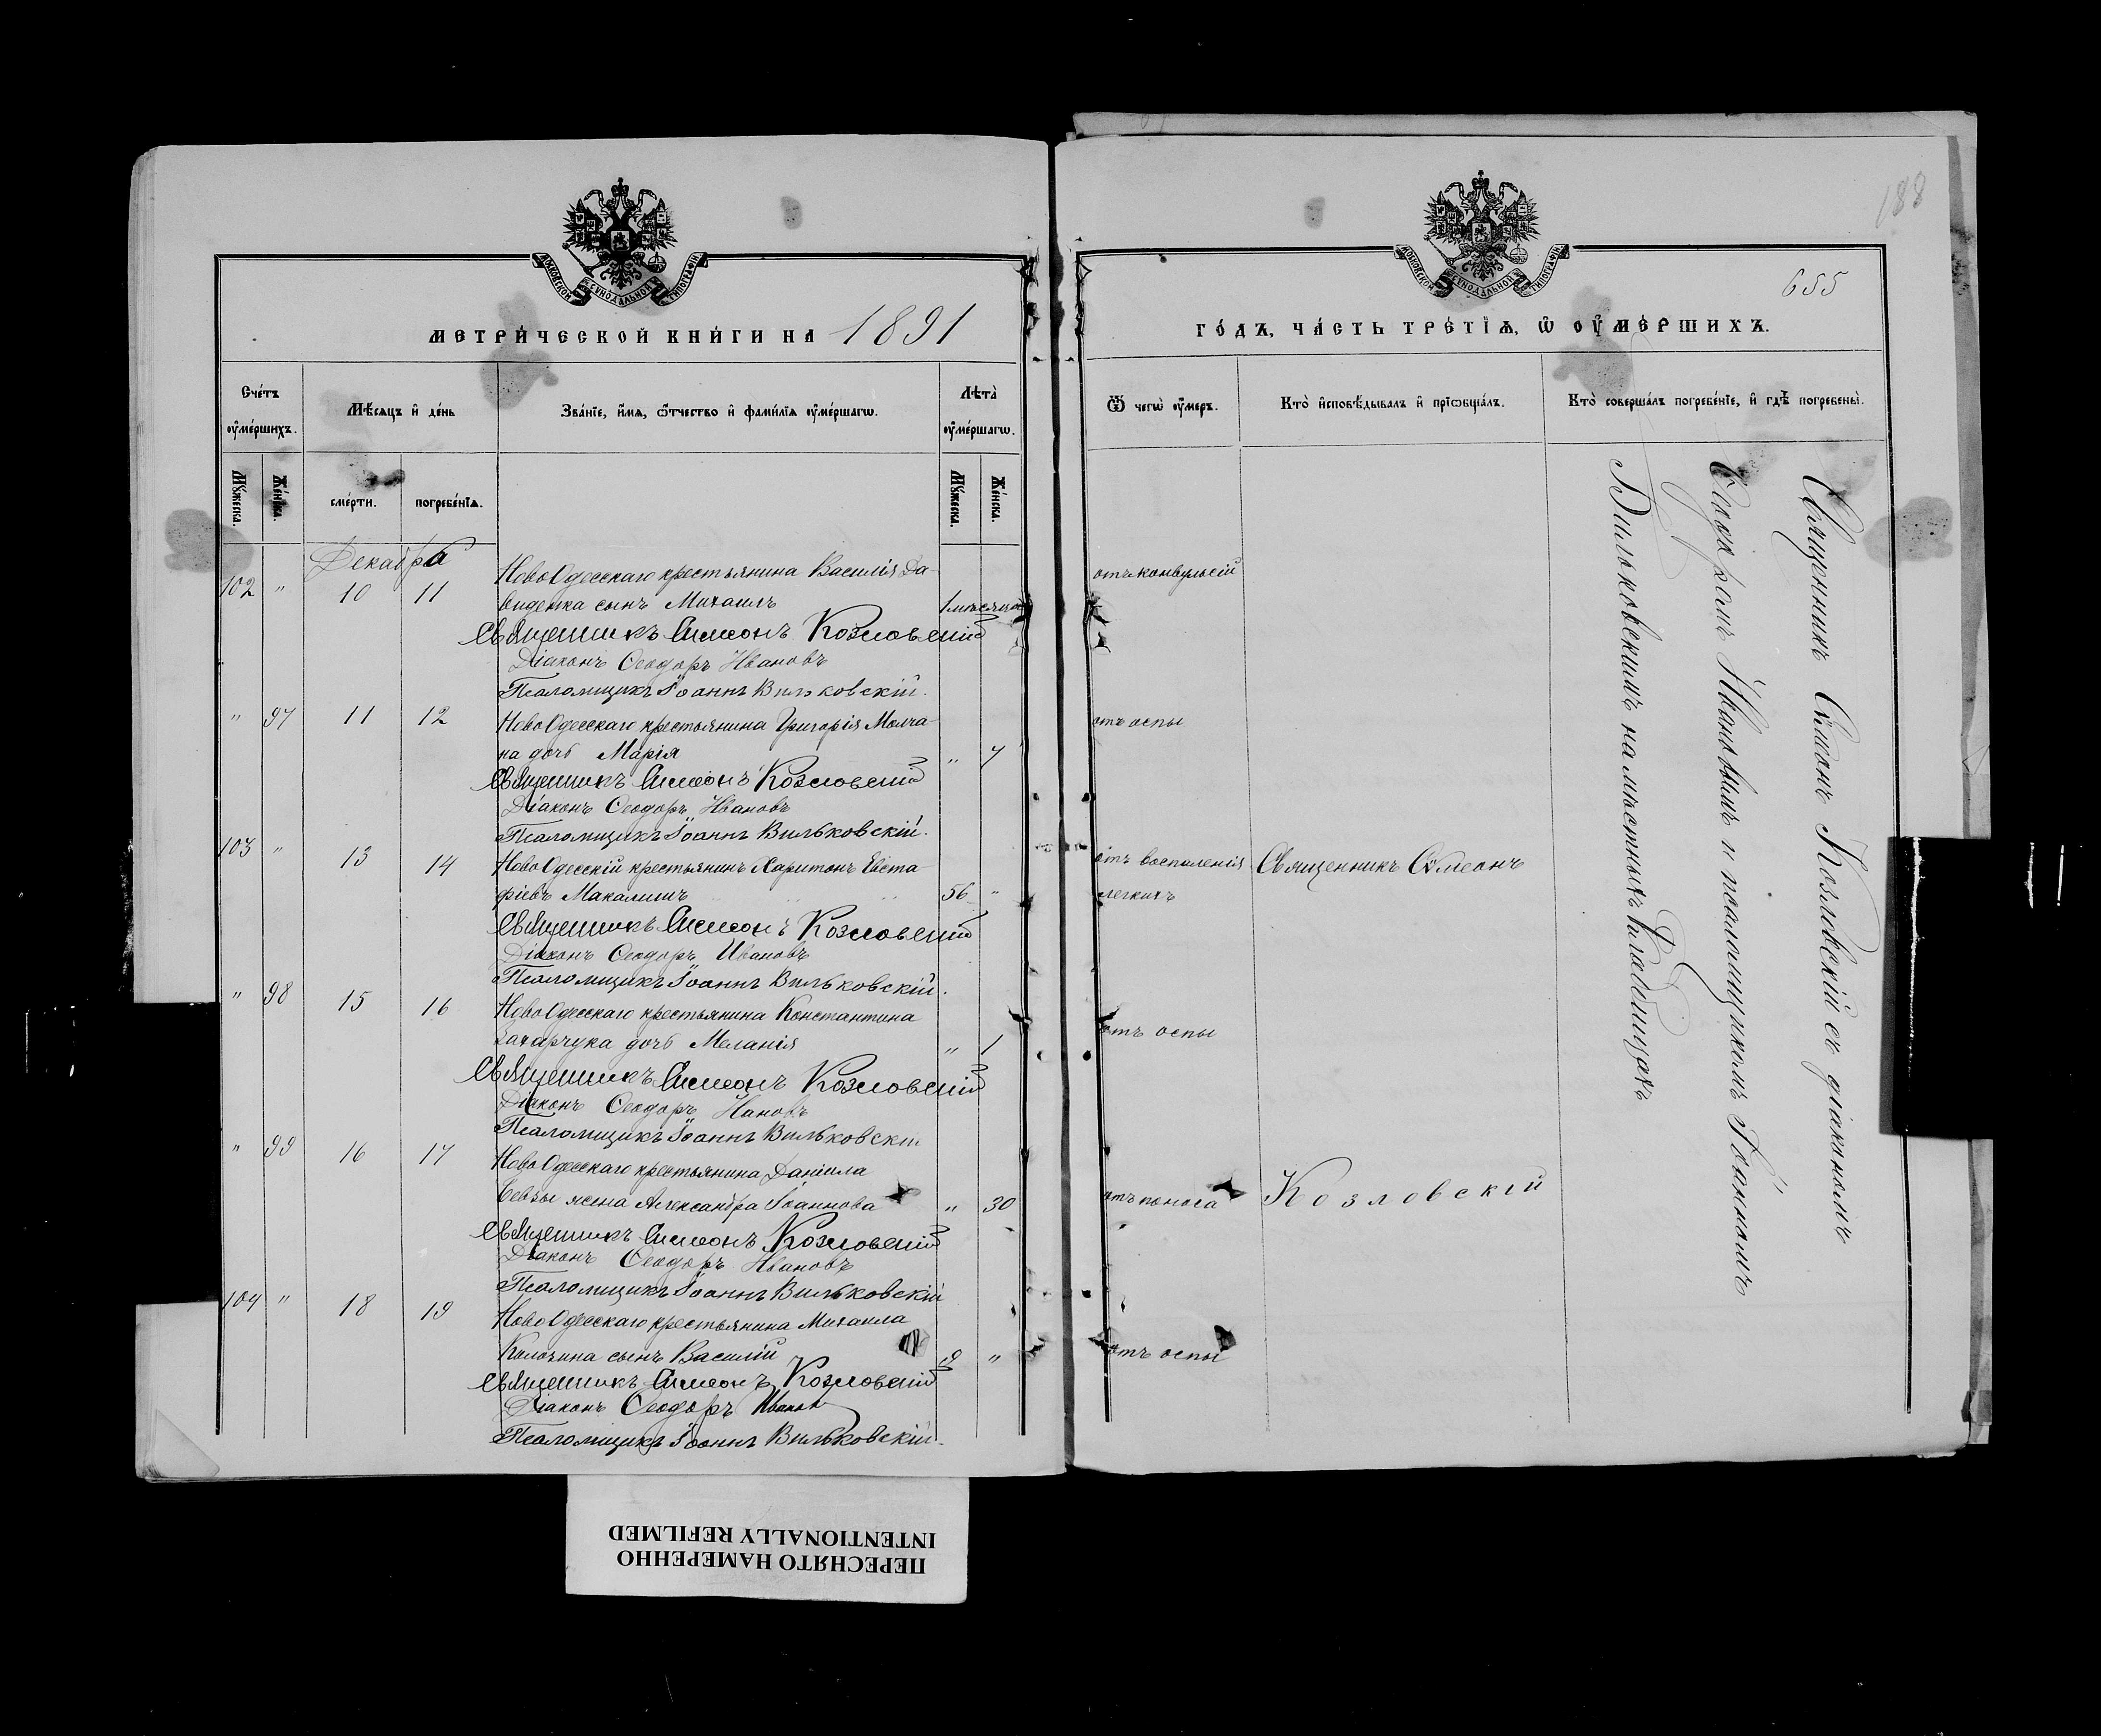 МОСКОВСКОЙ СѴНОДАЛЬНОЙ ТИПОГРАФІИ
МЕТРИ́ЧЕСКОЙ КНИ́ГИ НА 1891
Сче́тъ ᲂу҆ме́ршихъ.
Мѣ́сяцъ и҆ де́нь
Зва́нїе, и҆́мя, ѻ҆́тчество и҆ фами́лїя ᲂу҆ме́ршагѡ.
Лѣта̀ ᲂу҆ме́ршагѡ.
Мꙋ́жеска.
Же́нска.
сме́рти.
погребе́нїѧ.
Мꙋ́жеска.
Же́нска.
Декабра
102 " 10 11 Ново Одесскаго крестьянина Василія Да-
виденка сынъ Михаилъ 1 мѣсяца
Священникъ Симеонъ Козловскій
Діаконъ Ѳеодоръ Ивановъ
Псаломщикъ Іоаннъ Вильковскій.
" 97 11 12 Ново Одесскаго крестьянина Григорія Молча-
на дочь Марія " 7
Священникъ Симеонъ Козловскій
Діаконъ Ѳеодоръ Ивановъ
Псаломщикъ Іоаннъ Вильковскій.
103 " 13 14 Ново Одесскій крестьянинъ Харитонъ Евста-
фіевъ Макалишъ 56 "
Священникъ Симеонъ Козловскій
Діаконъ Ѳеодоръ Ивановъ
Псаломщикъ Іоаннъ Вильковскій.
" 98 15 16 Ново Одесскаго крестьянина Константина
Захарчука дочь Меланія " 1
Священникъ Симеонъ Козловскій
Діаконъ Ѳеодоръ Ивановъ
Псаломщикъ Іоаннъ Вильковскій
" 99 16 17 Ново Одесскаго крестьянина Даніила
жена Александра Іоаннова " 30
Священникъ Симеонъ Козловскій
Діаконъ Ѳеодоръ Ивановъ
Псаломщикъ Іоаннъ Вильковскій
104 " 18 19 Ново Одесскаго крестьянина Михаила
сынъ Василій "
Священникъ Симеонъ Козловскій
Діаконъ Ѳеодоръ Иванов
Псаломщикъ Іоаннъ Вильковскій.
188
655
МОСКОВСКОЙ СѴНОДАЛЬНОЙ ТИПОГРАФІИ
ГО́ДЪ, ЧА́СТЬ ТРЕ́ТЇѦ, Ѡ҆ ОУ҆МЕ́РШИХЪ.
Ѿ чегѡ̀ ᲂу҆́меръ.
Кто̀ и҆сповѣ́дывалъ и҆ прїѡбща́лъ.
Кто̀ соверша́лъ погребе́нїе, и҆ гдѣ̀ погребены̀.
отъ конвульсій
отъ оспы
отъ воспаленія
легкихъ
Священникъ Сѵмеонъ
отъ оспы
отъ поноса
Козловскій
отъ оспы
Священникъ Сѵмеонъ Козловскій съ діакономъ
Ѳеодоромъ Ивановымъ и псаломщикомъ Іоанномъ
Вильковскимъ на мѣстныхъ кладбищахъ
ПЕРЕСНЯТО НАМЕРЕННО
INTENTIONALLY REFILMED